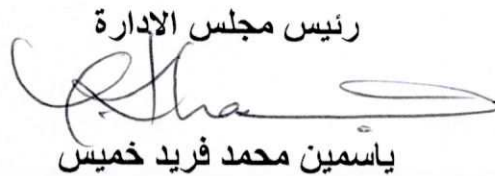 رئيس مجلس الادارة
ياسمين محمد فريد خميس